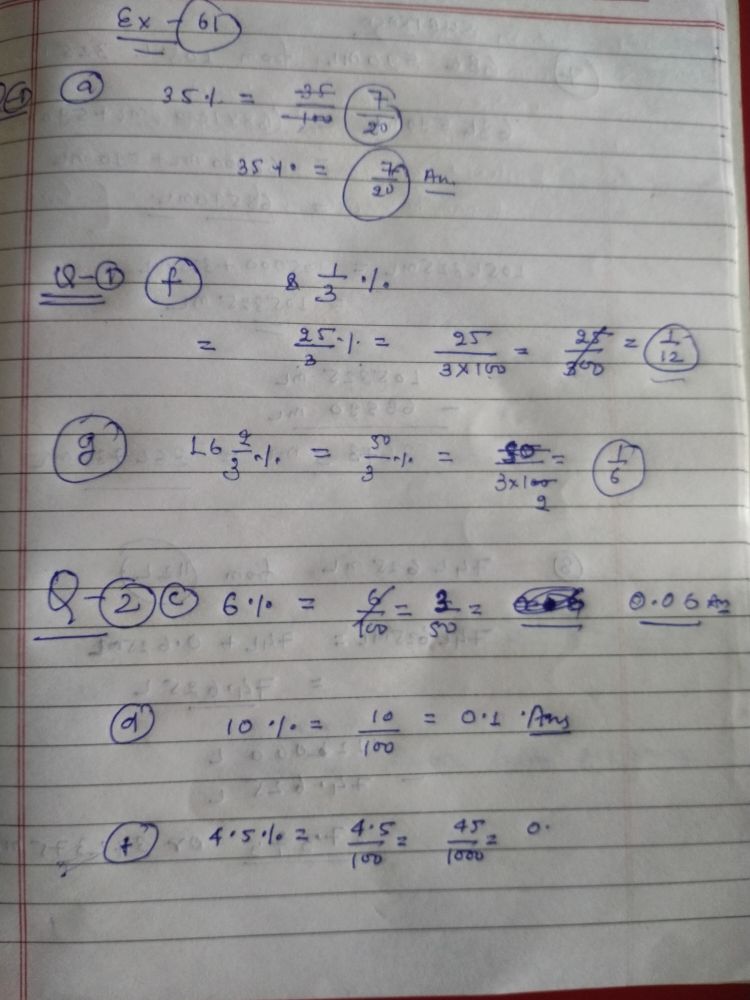 Ex - 61
Q-1 a 35% = 35/100 7/20
35% = 7/20 Ans
Q-1 f 8 1/3 %
= 25/3 % = 25/3×100 = 25/300 = 1/12
g 16 2/3 % = 50/3 % = 50/3×100 2 = 1/6
Q-2 c 6% = 6/100 = 3/50 = 0.06 Ans
d 10% = 10/100 = 0.1 Ans
f 4.5% = 4.5/100 = 45/1000 = 0.